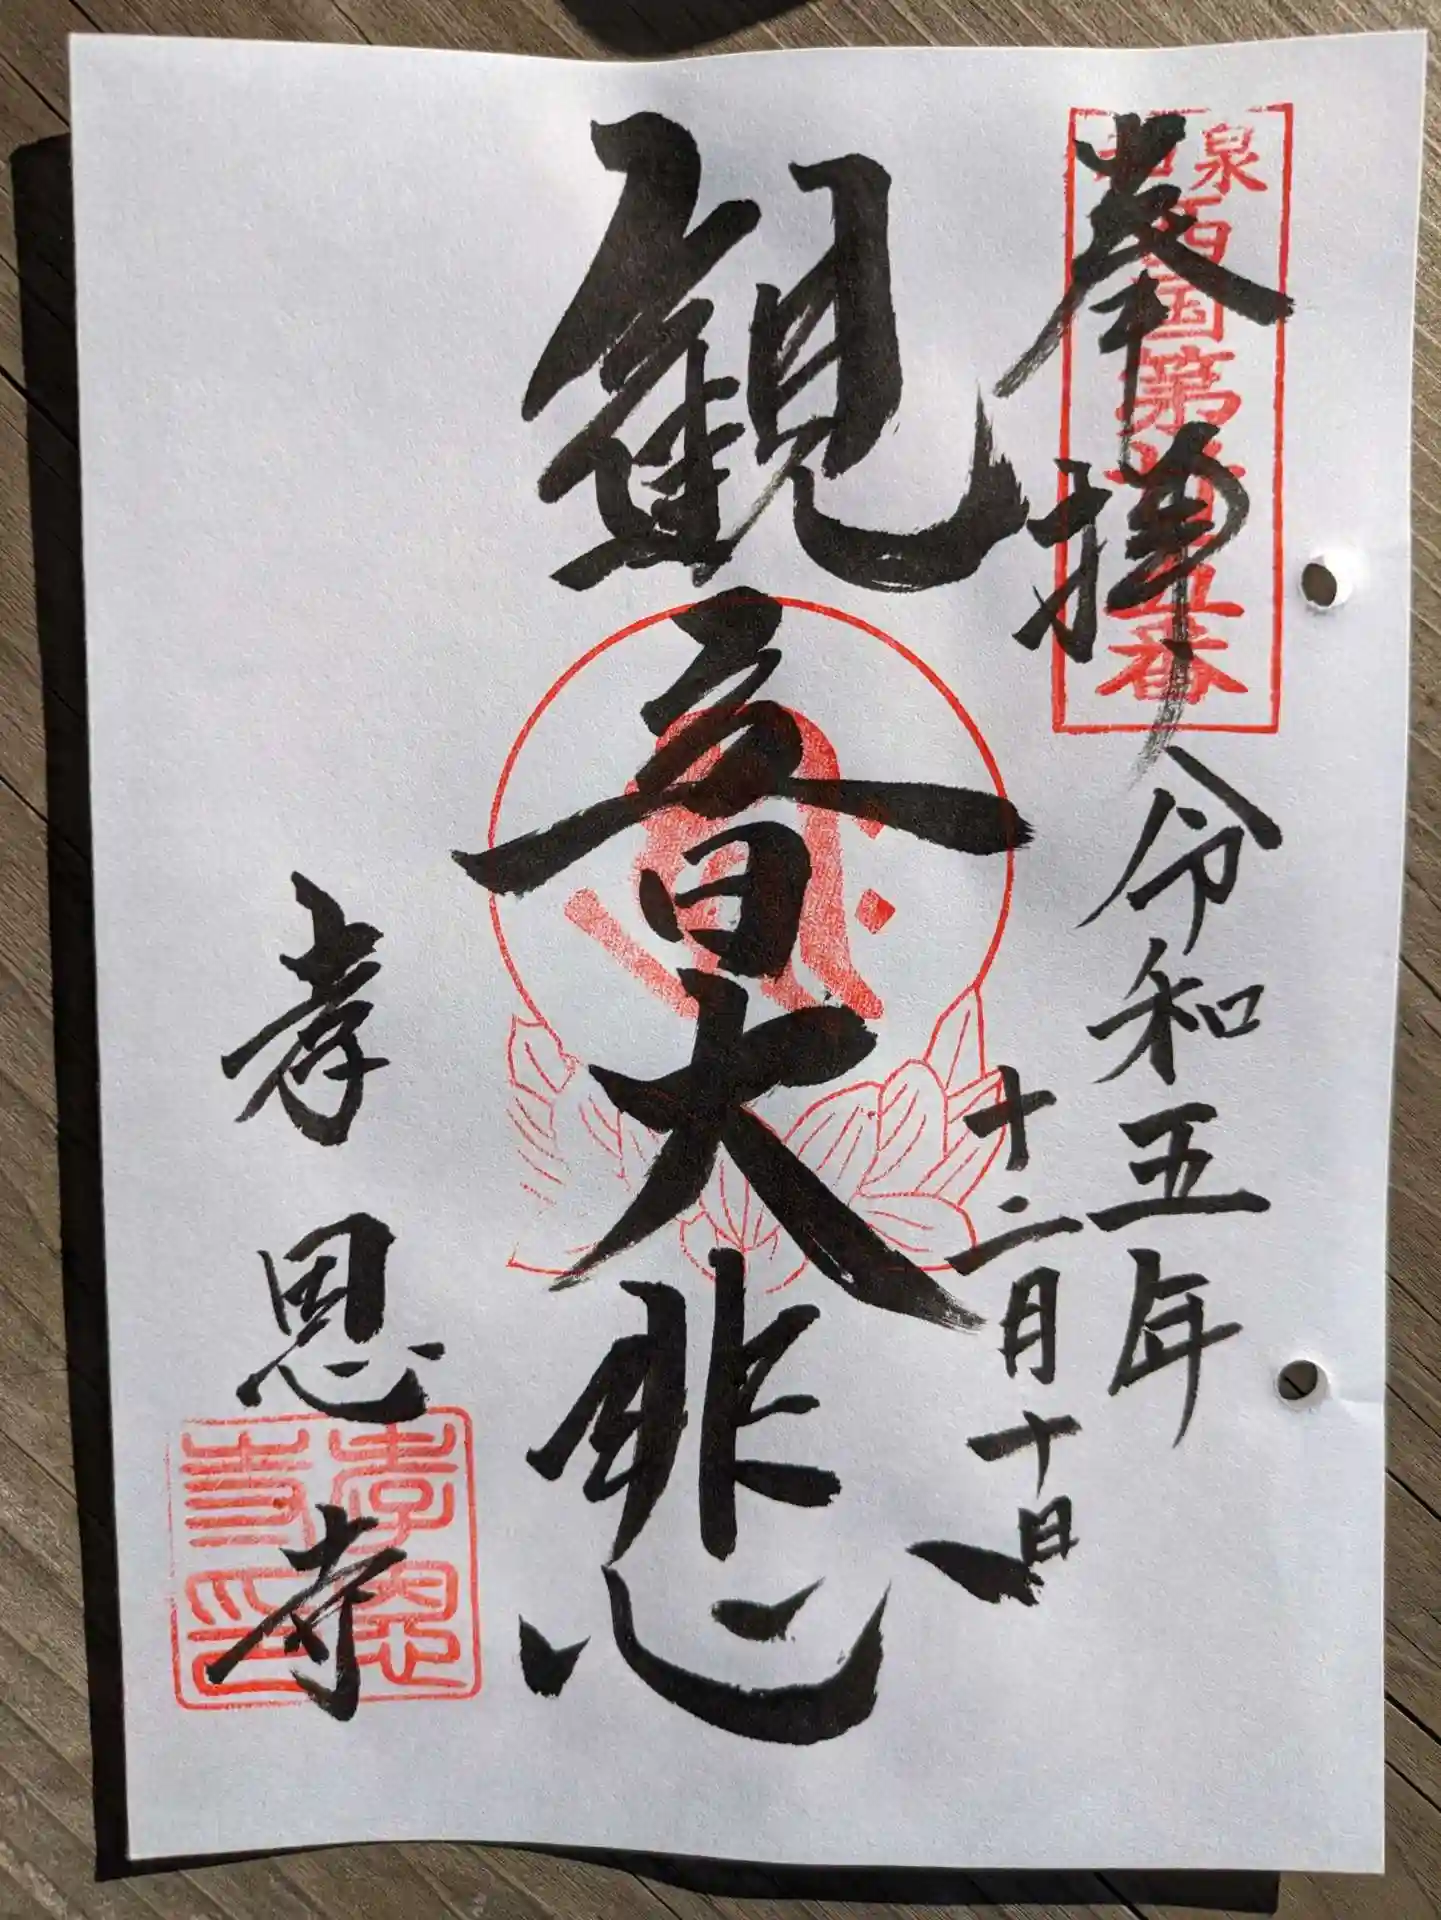 奉拝
和泉
西国第
五番
令和五年
十二月十日
観音大悲
孝恩寺
孝恩
寺印